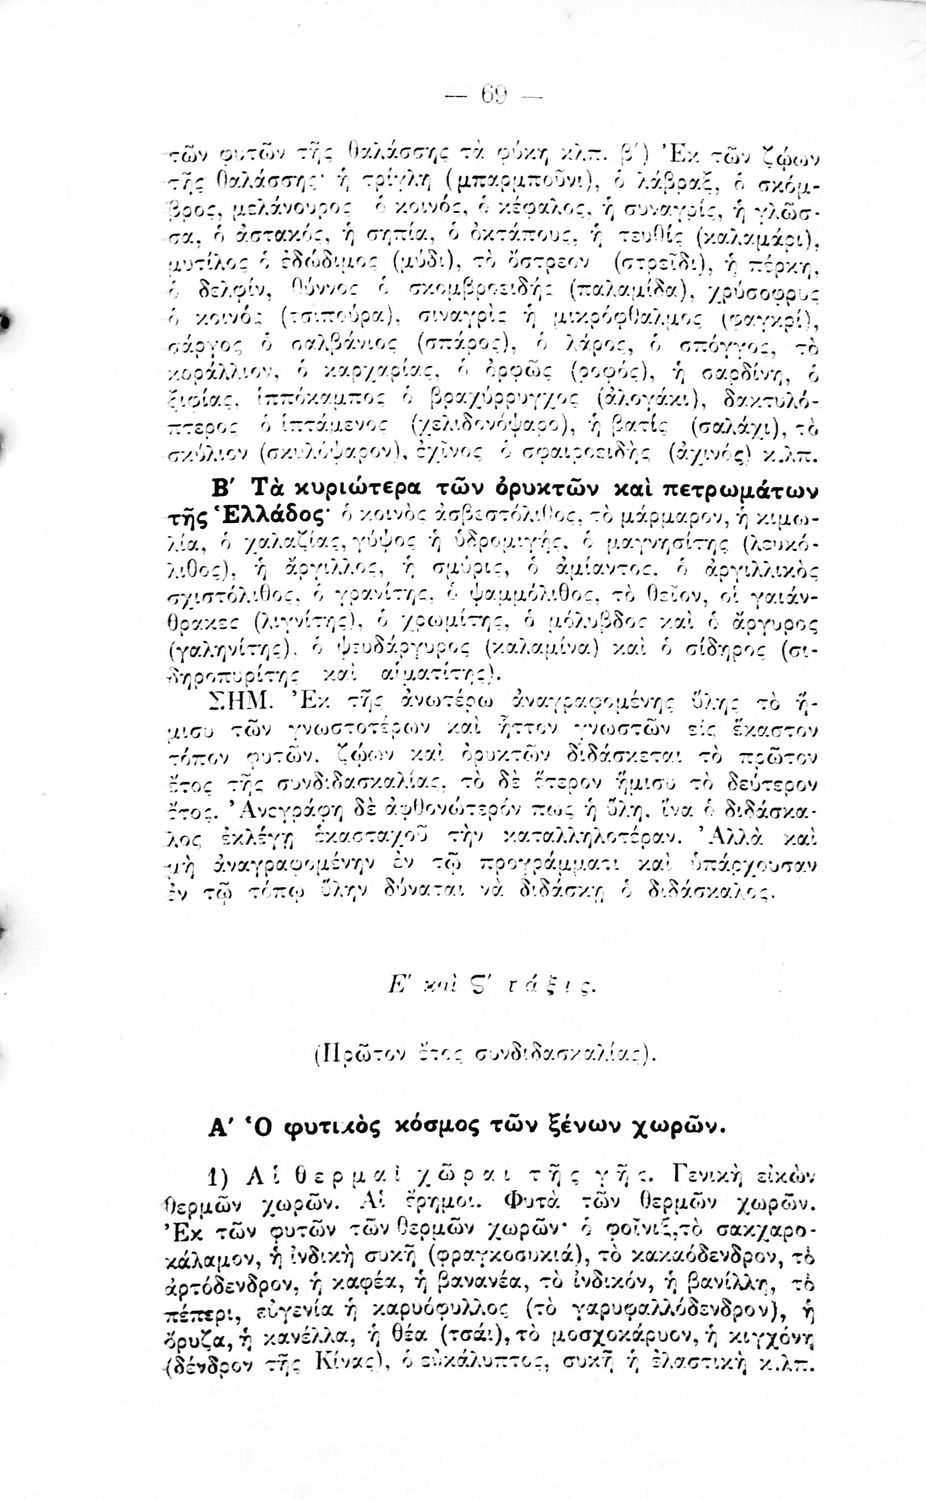 — 69 —
τῶν φυτῶν τῆς θαλάσσης τὰ φύκη κλπ. β′) Ἐκ τῶν ζῴων
τῆς θαλάσσης· ἡ τρίγλη (μπαρμποῦνι), ὁ λάβραξ, ὁ σκόμ-
βρος, μελάνουρος ὁ κοινός, ὁ κέφαλος, ἡ συναγρίς, ἡ γλῶσ-
σα, ὁ ἀστακός, ἡ σηπία, ὁ ὀκτάπους, ἡ τευθὶς (καλαμάρι),
μυτίλος ὁ ἐδώδιμος (μύδι), τὸ ὄστρεον (στρεῖδι), ἡ πέρκη,
ὁ δελφίν, θύννος ὁ σκομβροειδὴς (παλαμίδα), χρύσοφρυς
ὁ κοινὸς (τσιπούρα), σιναγρὶς ἡ μικρόφθαλμος (φαγκρί),
σάργος ὁ σαλβάνιος (σπάρος), ὁ λάρος, ὁ σπόγγος, τὸ
κοράλλιον, ὁ καρχαρίας, ὁ ὀρφῶς (ροφός), ἡ σαρδίνη, ὁ
ξιφίας, ἱππόκαμπος ὁ βραχύρρυγχος (ἀλογάκι), δακτυλό-
πτερος ὁ ἱπτάμενος (χελιδονόψαρο), ἡ βατὶς (σαλάχι), τὸ
σκύλιον (σκυλόψαρον), ἐχῖνος ὁ σφαιροειδὴς (ἀχινός) κ.λπ.
Β′ Τὰ κυριώτερα τῶν ὀρυκτῶν καὶ πετρωμάτων
τῆς Ἑλλάδος· ὁ κοινὸς ἀσβεστόλιθος, τὸ μάρμαρον, ἡ κιμω-
λία, ὁ χαλαζίας, γύψος ἡ ὑδρομιγής, ὁ μαγνησίτης (λευκό-
λιθος), ἡ ἄργιλλος, ἡ σμύρις, ὁ ἀμίαντος, ὁ ἀργιλλικὸς
σχιστόλιθος, ὁ γρανίτης, ὁ ψαμμόλιθος, τὸ θεῖον, οἱ γαιάν-
θρακες (λιγνίτης), ὁ χρωμίτης, ὁ μόλυβδος καὶ ὁ ἄργυρος
(γαληνίτης), ὁ ψευδάργυρος (καλαμίνα) καὶ ὁ σίδηρος (σι-
δηροπυρίτης καὶ αἱματίτης).
ΣΗΜ. Ἐκ τῆς ἀνωτέρω ἀναγραφομένης ὕλης τὸ ἥ-
μισυ τῶν γνωστοτέρων καὶ ἧττον γνωστῶν εἰς ἕκαστον
τόπον φυτῶν, ζῴων καὶ ὀρυκτῶν διδάσκεται τὸ πρῶτον
ἔτος τῆς συνδιδασκαλίας, τὸ δὲ ἕτερον ἥμισυ τὸ δεύτερον
ἔτος. Ἀνεγράφη δὲ ἀφθονώτερόν πως ἡ ὕλη, ἵνα ὁ διδάσκα-
λος ἐκλέγῃ ἑκασταχοῦ τὴν καταλληλοτέραν. Ἀλλὰ καὶ
μὴ ἀναγραφομένην ἐν τῷ προγράμματι καὶ ὑπάρχουσαν
ἐν τῷ τόπῳ ὕλην δύναται νὰ διδάσκῃ ὁ διδάσκαλος.
Ε′ καὶ Ϛ′ τάξις.
(Πρῶτον ἔτος συνδιδασκαλίας).
Α′ Ὁ φυτικὸς κόσμος τῶν ξένων χωρῶν.
1) Αἱ θερμαὶ χῶραι τῆς γῆς. Γενικὴ εἰκὼν
θερμῶν χωρῶν. Αἱ ἔρημοι. Φυτὰ τῶν θερμῶν χωρῶν.
Ἐκ τῶν φυτῶν τῶν θερμῶν χωρῶν· ὁ φοῖνιξ, τὸ σακχαρο-
κάλαμον, ἡ ἰνδικὴ συκῆ (φραγκοσυκιά), τὸ κακαόδενδρον, τὸ
ἀρτόδενδρον, ἡ καφέα, ἡ βανανέα, τὸ ἰνδικόν, ἡ βανίλλη, τὸ
πέπερι, εὐγενία ἡ καρυόφυλλος (τὸ γαρυφαλλόδενδρον), ἡ
ὄρυζα, ἡ κανέλλα, ἡ θέα (τσάϊ), τὸ μοσχοκάρυον, ἡ κιγχόνη
(δένδρον τῆς Κίνας), ὁ εὐκάλυπτος, συκῆ ἡ ἐλαστικὴ κ.λπ.